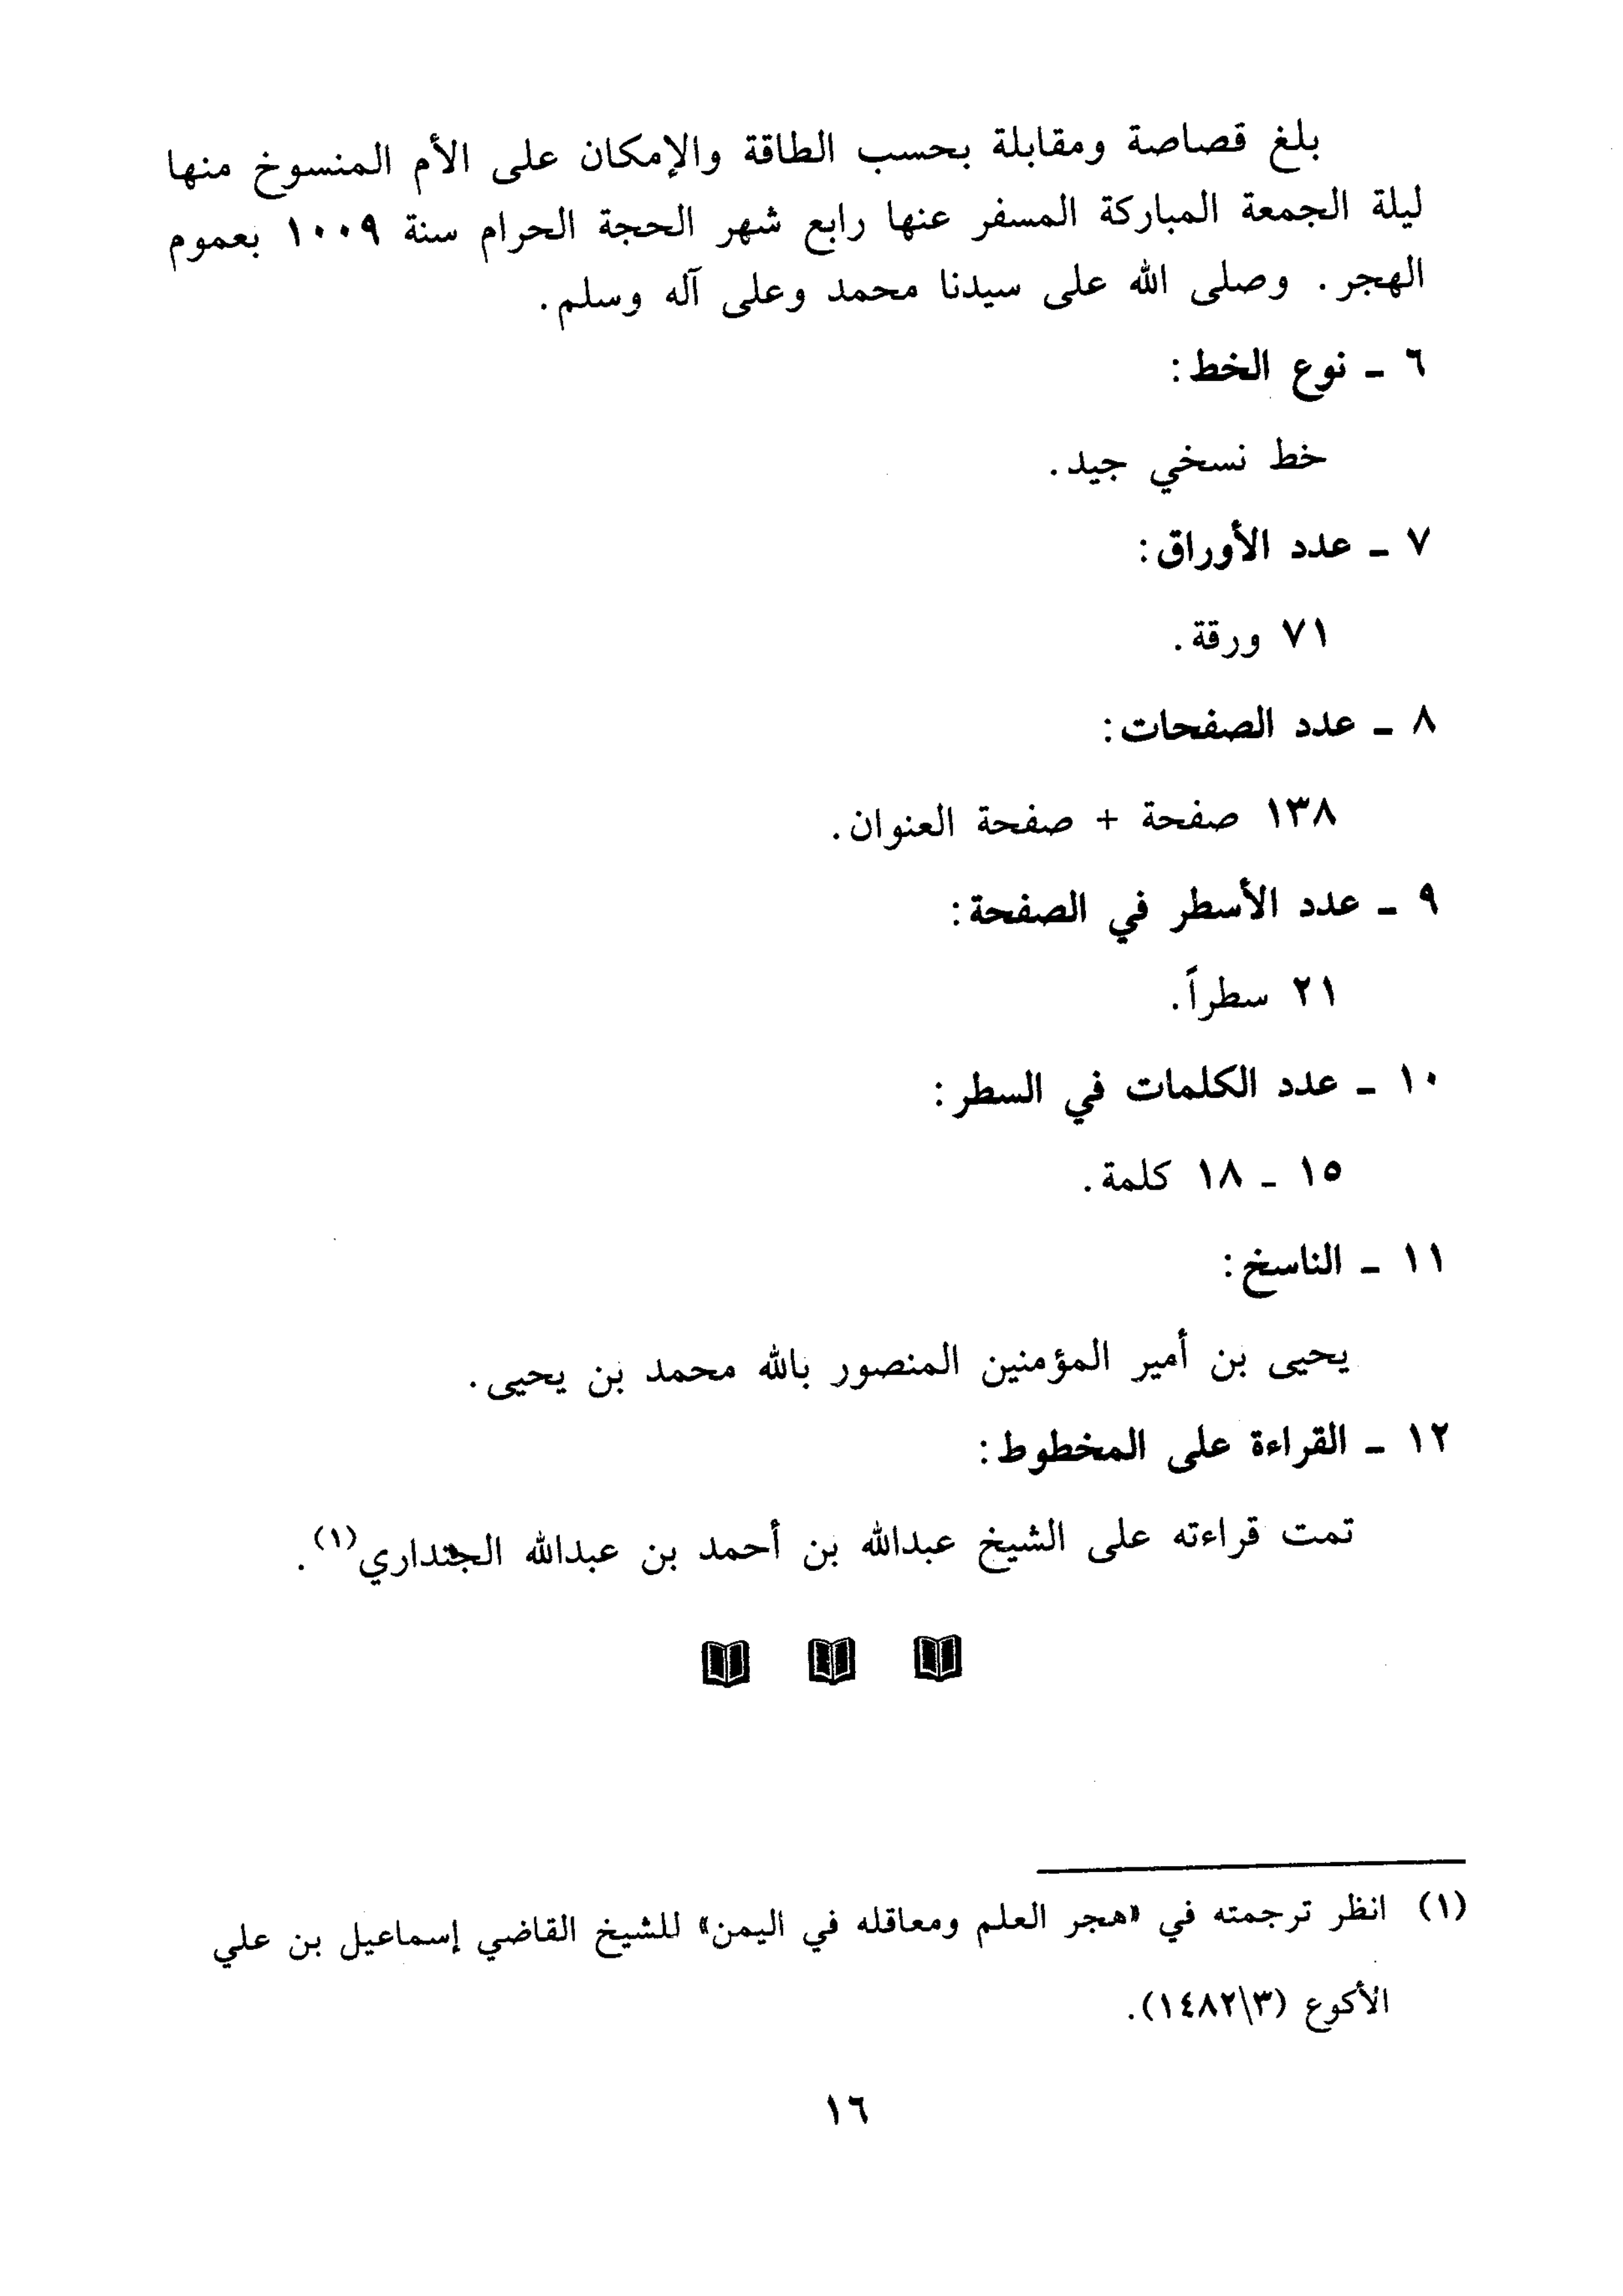 بلغ قصاصة ومقابلة بحسب الطاقة والإمكان على الأم المنسوخ منها
ليلة الجمعة المباركة المسفر عنها رابع شهر الحجة الحرام سنة ١٠٠٩ بعموم
الهجر. وصلى الله على سيدنا محمد وعلى آله وسلم.
٦ ـ نوع الخط:
خط نسخي جيد.
٧ ـ عدد الأوراق:
٧١ ورقة.
٨ ـ عدد الصفحات:
١٣٨ صفحة + صفحة العنوان.
٩ ـ عدد الأسطر في الصفحة:
٢١ سطراً.
١٠ ـ عدد الكلمات في السطر:
١٥ ـ ١٨ كلمة.
١١ ـ الناسخ:
يحيى بن أمير المؤمنين المنصور بالله محمد بن يحيى.
١٢ ـ القراءة على المخطوط:
تمت قراءته على الشيخ عبدالله بن أحمد بن عبدالله الجنداري(١).
(١) انظر ترجمته في «هجر العلم ومعاقله في اليمن» للشيخ القاضي إسماعيل بن علي
الأكوع (٣\١٤٨٢).
١٦